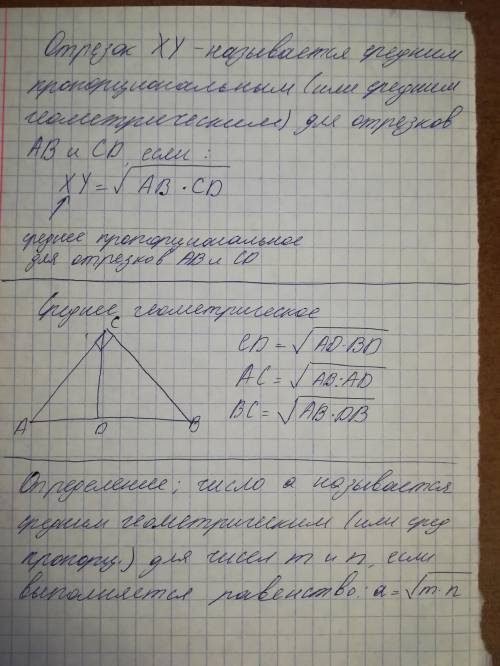 Отрезок XY - называется средним
пропорциональным (или средним
геометрическим) для отрезков
AB и CD, если:
XY = √AB · CD
среднее пропорциональное
для отрезков AB и CD
Среднее геометрическое
C
A D B
CD = √AD·BD
AC = √AB·AD
BC = √AB·DB
Определение; число a называется
средним геометрическим (или сред
пропорц.) для чисел m и n, если
выполняется равенство: a = √m·n